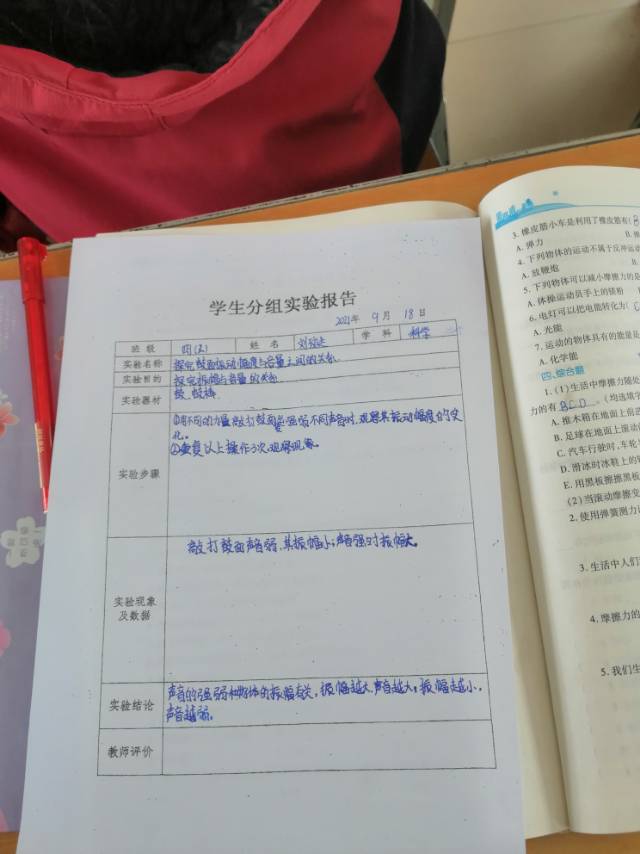 学生分组实验报告
2021年 9 月 18 日
班 级 四(2) 姓 名 学 科 科学
实验名称 探究鼓面振动幅度与音量之间的关系
实验目的 探究振幅与音量的关系
实验器材 鼓、鼓棒
实验步骤
①用不同的力量敲打鼓面 不同声音时,观察其振动幅度的变
化。
②重复以上操作3次,观察现象。
实验现象
及数据
敲打鼓面声音弱,其振幅小;声音强时振幅大。
实验结论
声音的强弱和物体的振幅有关,振幅越大,声音越大。振幅越小,
声音越弱。
教师评价
3. 橡皮筋小车是利用了橡皮筋有( B
A. 弹力 B.
4. 下列物体的运动不属于反冲运动
A. 放鞭炮
5. 下列物体可以减小摩擦力的是
A. 体操运动员手上的镁粉
6. 电灯可以把电能转化为(
A. 光能
7. 运动的物体具有的能量是
A. 化学能
四、综合题
1. (1) 生活中摩擦力随处
力的有 BCD 。(均选填字
A. 推木箱在地面上前进
B. 足球在地面上滚动
C. 汽车行驶时,车轮
D. 滑冰时冰鞋上的
E. 用黑板擦擦黑板
(2) 当滚动摩擦变
2. 使用弹簧测力
3. 生活中人们
4. 摩擦力的
5. 我们生